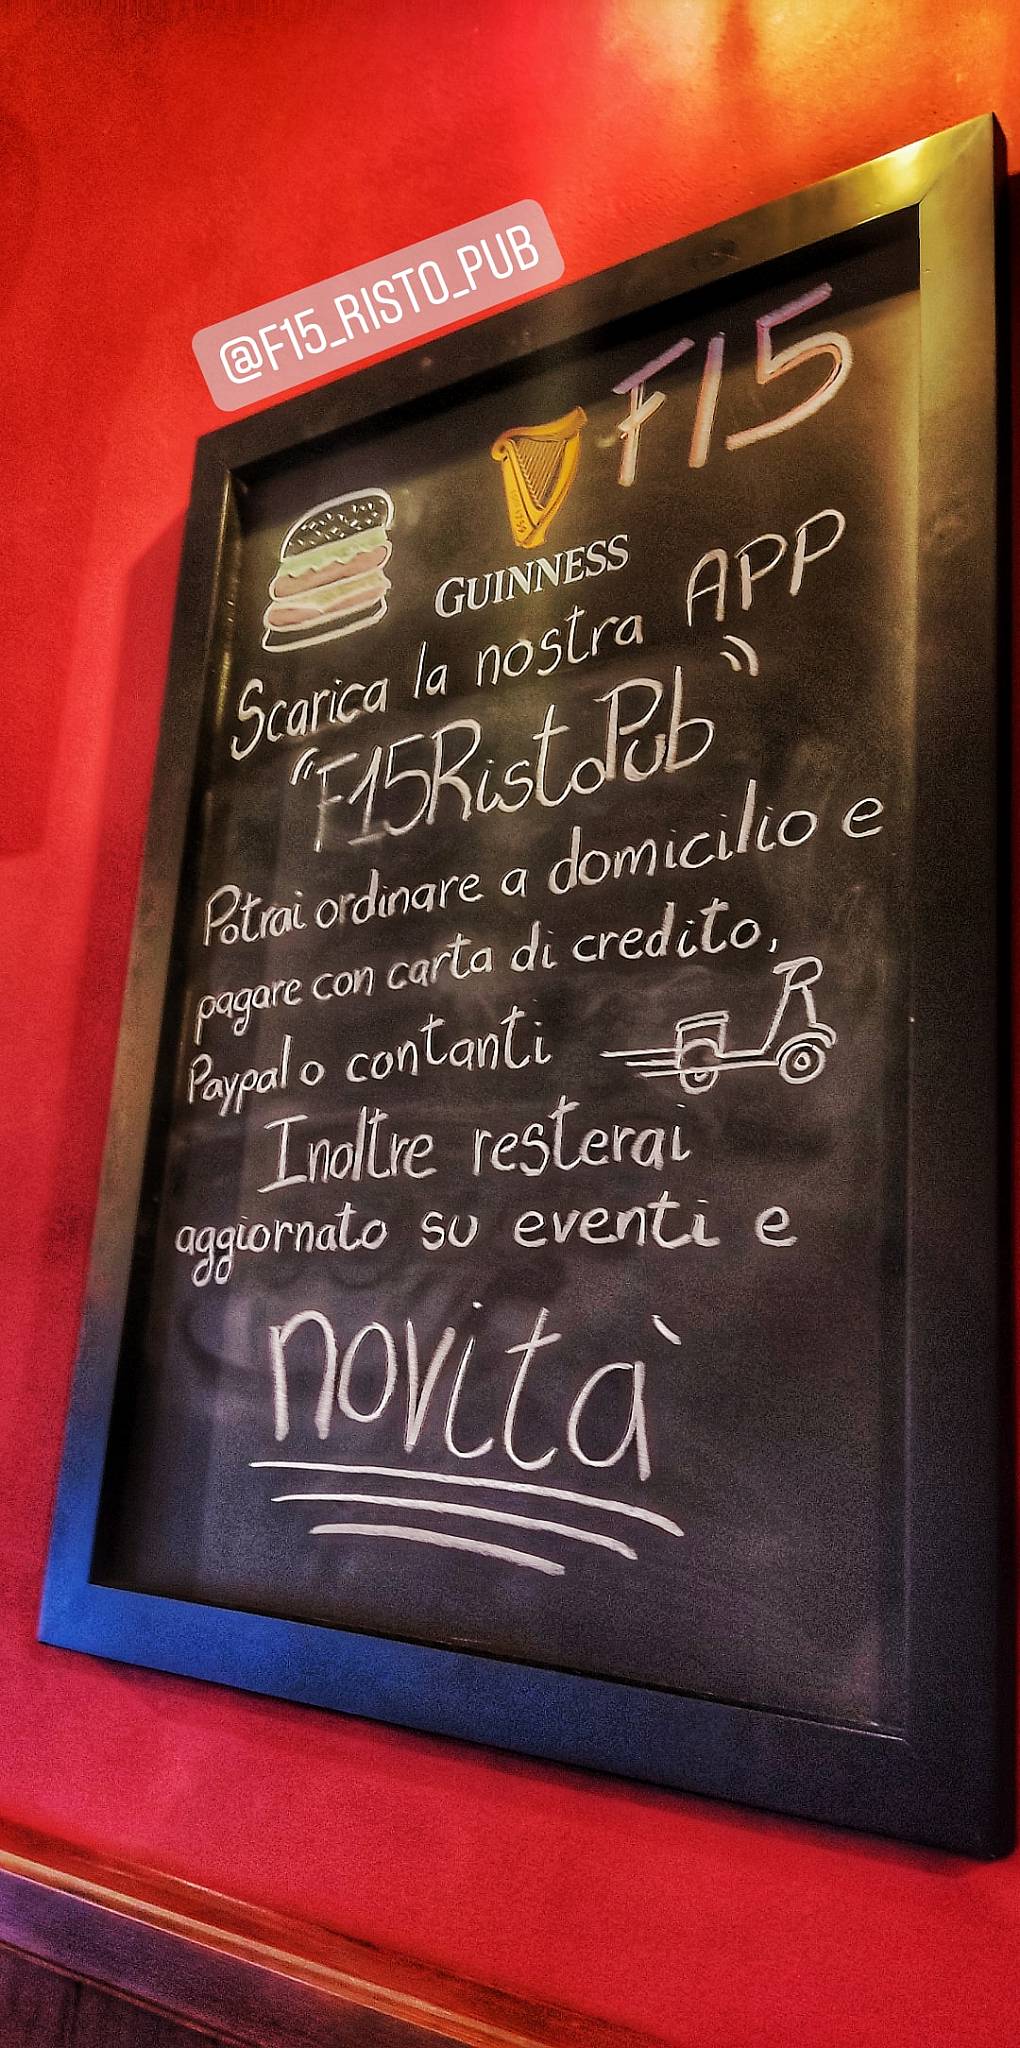 @F15_RISTO_PUB
F15
GUINNESS
Scarica la nostra APP
"F15RistoPub"
Potrai ordinare a domicilio e
pagare con carta di credito,
Paypal o contanti
Inoltre resterai
aggiornato su eventi e
novità